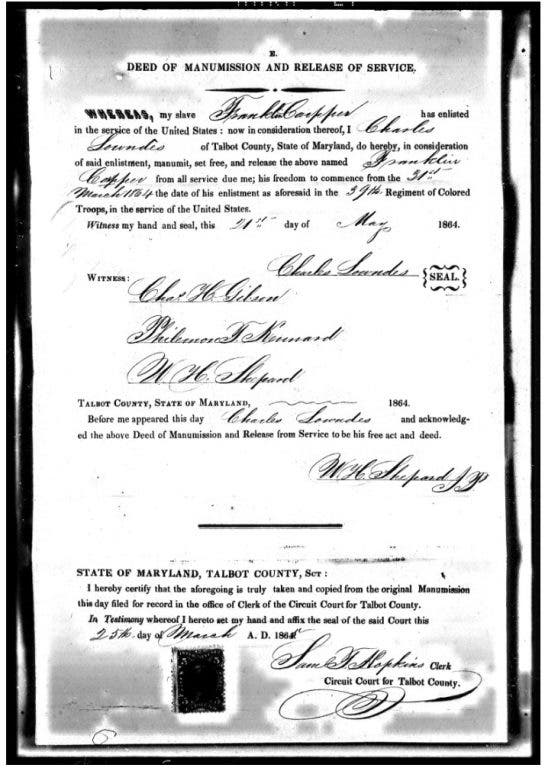 E.
DEED OF MANUMISSION AND RELEASE OF SERVICE.
WHEREAS, my slave Franklin Copper has enlisted
in the service of the United States: now in consideration thereof, I Charles
Lowndes of Talbot County, State of Maryland, do hereby, in consideration
of said enlistment, manumit, set free, and release the above named Franklin
Copper from all service due me; his freedom to commence from the 31st
March 1864 the date of his enlistment as aforesaid in the 39th Regiment of Colored
Troops, in the service of the United States.
Witness my hand and seal, this 21st day of May 1864.
Charles Lowndes {SEAL.}
WITNESS:
Chas. H. Gibson
Philemon F. Kennard
W. H. Shepard
TALBOT COUNTY, STATE OF MARYLAND, 1864.
Before me appeared this day Charles Lowndes and acknowledg-
ed the above Deed of Manumission and Release from Service to be his free act and deed.
W. H. Shepard J P
STATE OF MARYLAND, TALBOT COUNTY, SCT:
I hereby certify that the aforegoing is truly taken and copied from the original Manumission
this day filed for record in the office of Clerk of the Circuit Court for Talbot County.
In Testimony whereof I hereto set my hand and affix the seal of the said Court this
25th day of March A. D. 186
Sam T Hopkins Clerk
Circuit Court for Talbot County.